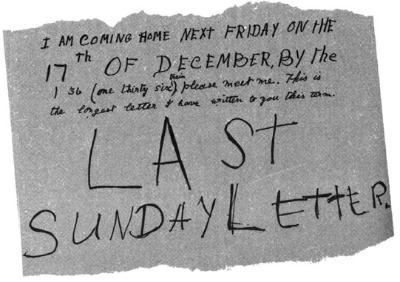 I AM COMING HOME NEXT FRIDAY ON THE
17th OF DECEMBER, BY the
1 36 (one thirty six) train please meet me. This is
the longest letter I have written to you this term.
LAST
SUNDAY LETTER.